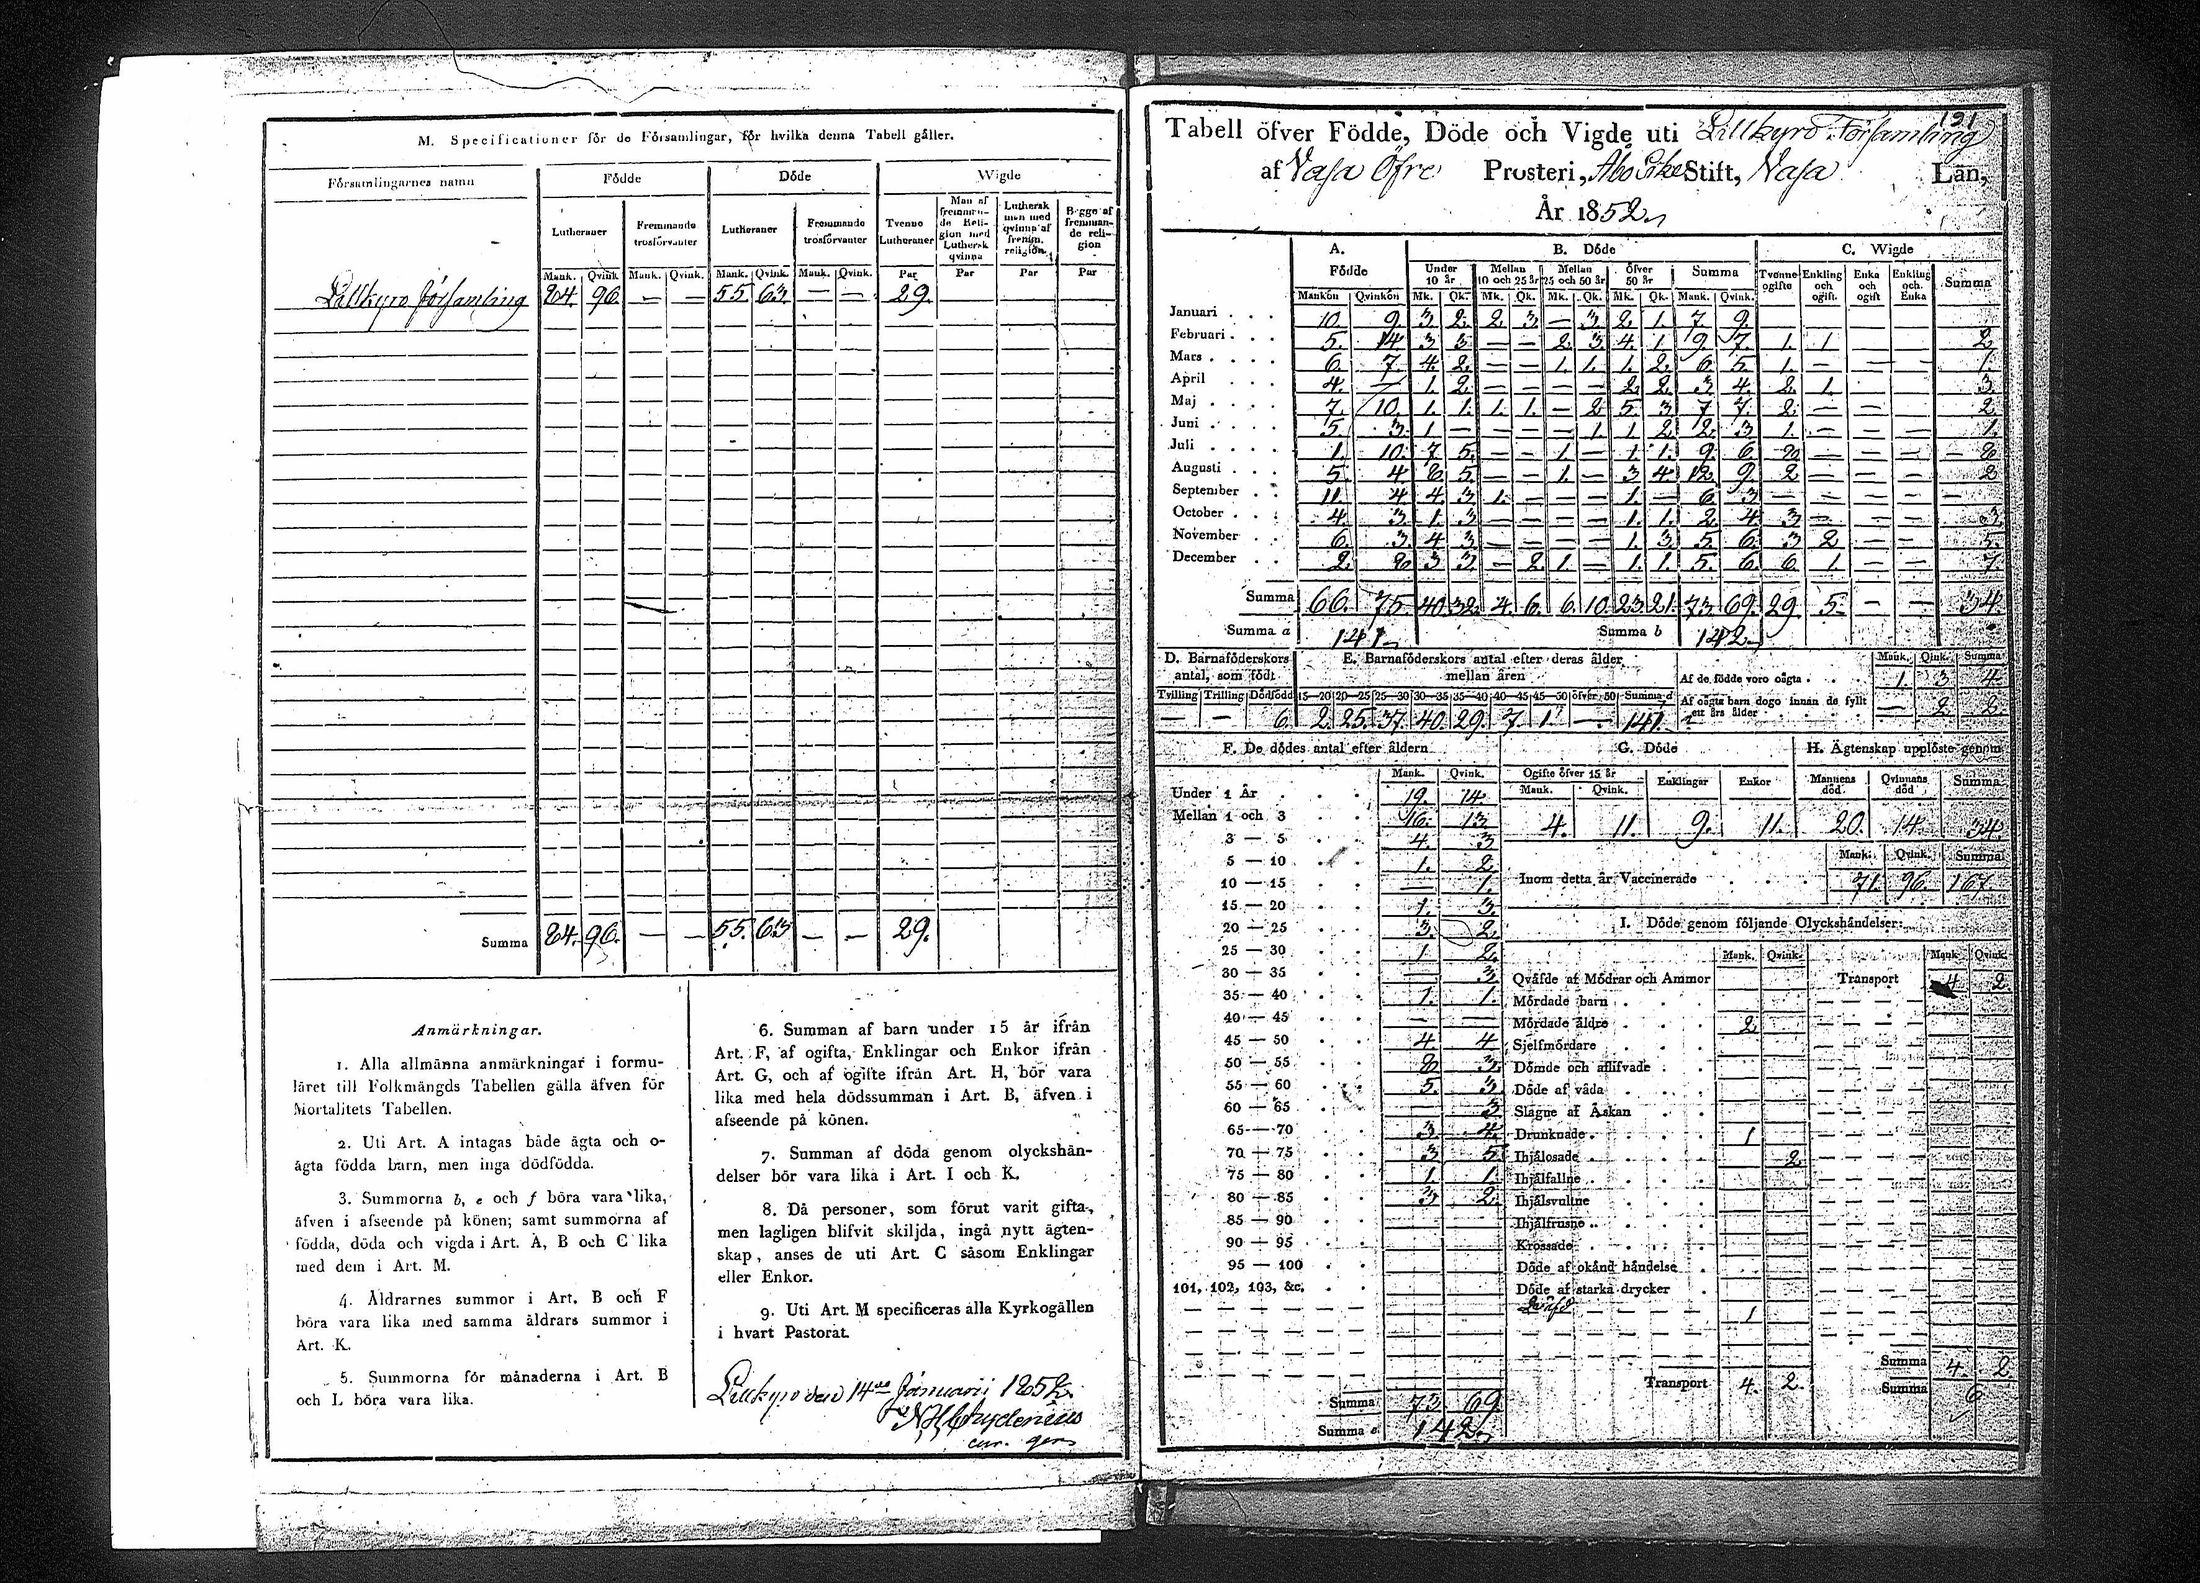 M. Specificationer för de Församlingar, för hvilka denna Tabell gäller.
Församlingarnes namn
Födde
Döde
Wigde
Lutheraner
Fremmande trosförvanter
Lutheraner
Fremmande trosförvanter
Tvenne Lutheraner
Man af fremmande Religion med Luthersk qvinna
Luthersk man med qvinna af fremm. religion
Begge af fremmande religion
Mank. Qvink. Mank. Qvink. Mank. Qvink. Mank. Qvink. Par Par Par Par
Lillkyro församling 84. 96. — — 55. 63. — — 29.
Summa 84. 96. — — 55. 63. — — 29.
Anmärkningar.
1. Alla allmänna anmärkningar i formu-
läret till Folkmängds Tabellen gälla äfven för
Mortalitets Tabellen.
2. Uti Art. A intagas både ägta och o-
ägta födda barn, men inga dödfödda.
3. Summorna b, e och f böra vara lika,
äfven i afseende på könen; samt summorna af
födda, döda och vigda i Art. A, B och C lika
med dem i Art. M.
4. Åldrarnes summor i Art. B och F
böra vara lika med samma åldrars summor i
Art. K.
5. Summorna för månaderna i Art. B
och L böra vara lika.
6. Summan af barn under 15 år ifrån
Art. F, af ogifta, Enklingar och Enkor ifrån
Art. G, och af ogifte ifrån Art. H, bör vara
lika med hela dödssumman i Art. B, äfven i
afseende på könen.
7. Summan af döda genom olyckshän-
delser bör vara lika i Art. I och K.
8. Då personer, som förut varit gifta,
men lagligen blifvit skiljda, ingå nytt ägten-
skap, anses de uti Art. C såsom Enklingar
eller Enkor.
9. Uti Art. M specificeras alla Kyrkogällen
i hvart Pastorat.
Lillkyro den 14 Januarii 1852.
Chydenius
191
Tabell öfver Födde, Döde och Vigde uti Lillkyro Församling
af Vasa Öfre Prosteri, Åbo Stift, Vasa Län,
År 1852
A. Födde
B. Döde
C. Wigde
Under 10 år
Mellan 10 och 25 år
Mellan 25 och 50 år
Öfver 50 år
Summa
Tvenne ogifte
Enkling och ogift.
Enka och ogift
Enkling och Enka
Summa
Mankön Qvinkön Mk. Qk. Mk. Qk. Mk. Qk. Mk. Qk. Mank. Qvink.
Januari 10. 9. 3. 2. 2. 3. — 3. 2. 1. 7. 9.
Februari 5. 14 3 3 — — 2. 3 4. 1 9. 7. 1. 1 2.
Mars 6. 7 4. 2. — — 1. 1. 1. 2. 6. 5. 1. — — — 1.
April 4. — 1. 2. — — — — 2. 2. 3 4. 2. 1. 3.
Maj 7. 10. 1. 1. 1. 1. — 2 5. 3 7 7. 2. — — 2.
Juni 5. 3. 1 — — — — 1. 1. 2. 2. 3 1. — — — 1.
Juli 1. 10. 7 5. — — 1 — 1. 1. 9. 6 — — — 2
Augusti 5. 4 8 5. — — 1. — 3 4 12. 9. 2 — — — 2
September 11. 4 4. 3 1. — — — 1. — 6. 3 — — — — —
October 4. 3. 1. 3 — — — — 1. 1. 2. 4. 3 — — — 3.
November 6. 3. 4 3 — — — — 1. 3 5. 6. 3 2. — — 5.
December 2. 8 3 3. — 2. 1. — 1. 1. 5. 6. 6. 1. — — 7.
Summa 66. 75. 40. 32. 4. 6. 6. 10. 23. 21. 73. 69. 29. 5. — — 34.
Summa a 141.
Summa b 142.
D. Barnaföderskors antal, som födt
Tvilling Trilling Dödfödd
— — 6.
E. Barnaföderskors antal efter deras ålder mellan åren
15—20 20—25 25—30 30—35 35—40 40—45 45—50 öfver 50 Summa d
2. 25. 37. 40. 29. 7. 1. — 141.
Mank. Qink. Summa
Af de födde voro oägta 1. 3. 4.
Af oägta barn dogo innan de fyllt ett års ålder — 2. 2.
F. De dödes antal efter åldern
Mank. Qvink.
Under 1 År 19. 14.
Mellan 1 och 3 16. 13
3 — 5 4. 3
5 — 10 1. 2.
10 — 15 — 1.
15 — 20 1. 3.
20 — 25 3. 2.
25 — 30 1 2.
30 — 35 — 3.
35 — 40 1. 1.
40 — 45 — —
45 — 50 4. 4
50 — 55 8 3.
55 — 60 5. 3
60 — 65
65 — 70 3 4.
70 — 75 3 5
75 — 80 1. 1.
80 — 85 3 2.
85 — 90
90 — 95
95 — 100
101, 102, 103, &c.
Summa 73. 69.
Summa e 142.
G. Döde
Ogifte öfver 15 år
Mank. Qvink. Enklingar Enkor
4. 11. 9. 11.
H. Ägtenskap upplöste genom
Mannens död. Qvinnans död Summa
20. 14. 34.
Mank. Qvink. Summa
Inom detta år Vaccinerade 71. 96. 167.
I. Döde genom följande Olyckshändelser:
Mank. Qvink. Mank. Qvink.
Qväfde af Mödrar och Ammor
Transport 4 2
Mördade barn
Mördade äldre 2.
Sjelfmördare
Dömde och aflifvade
Döde af våda
Slagne af Åskan
Drunknade 1
Ihjälosade 2.
Ihjälfallne
Ihjälsvultne
Ihjälfrusne
Krossade
Döde af okänd händelse
Döde af starka drycker
1
Transport 4. 2.
Summa 4. 2.
Summa 6